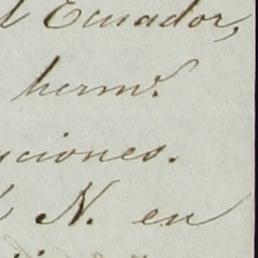 l Ecuador,
herm.ª
ciones.
N. en